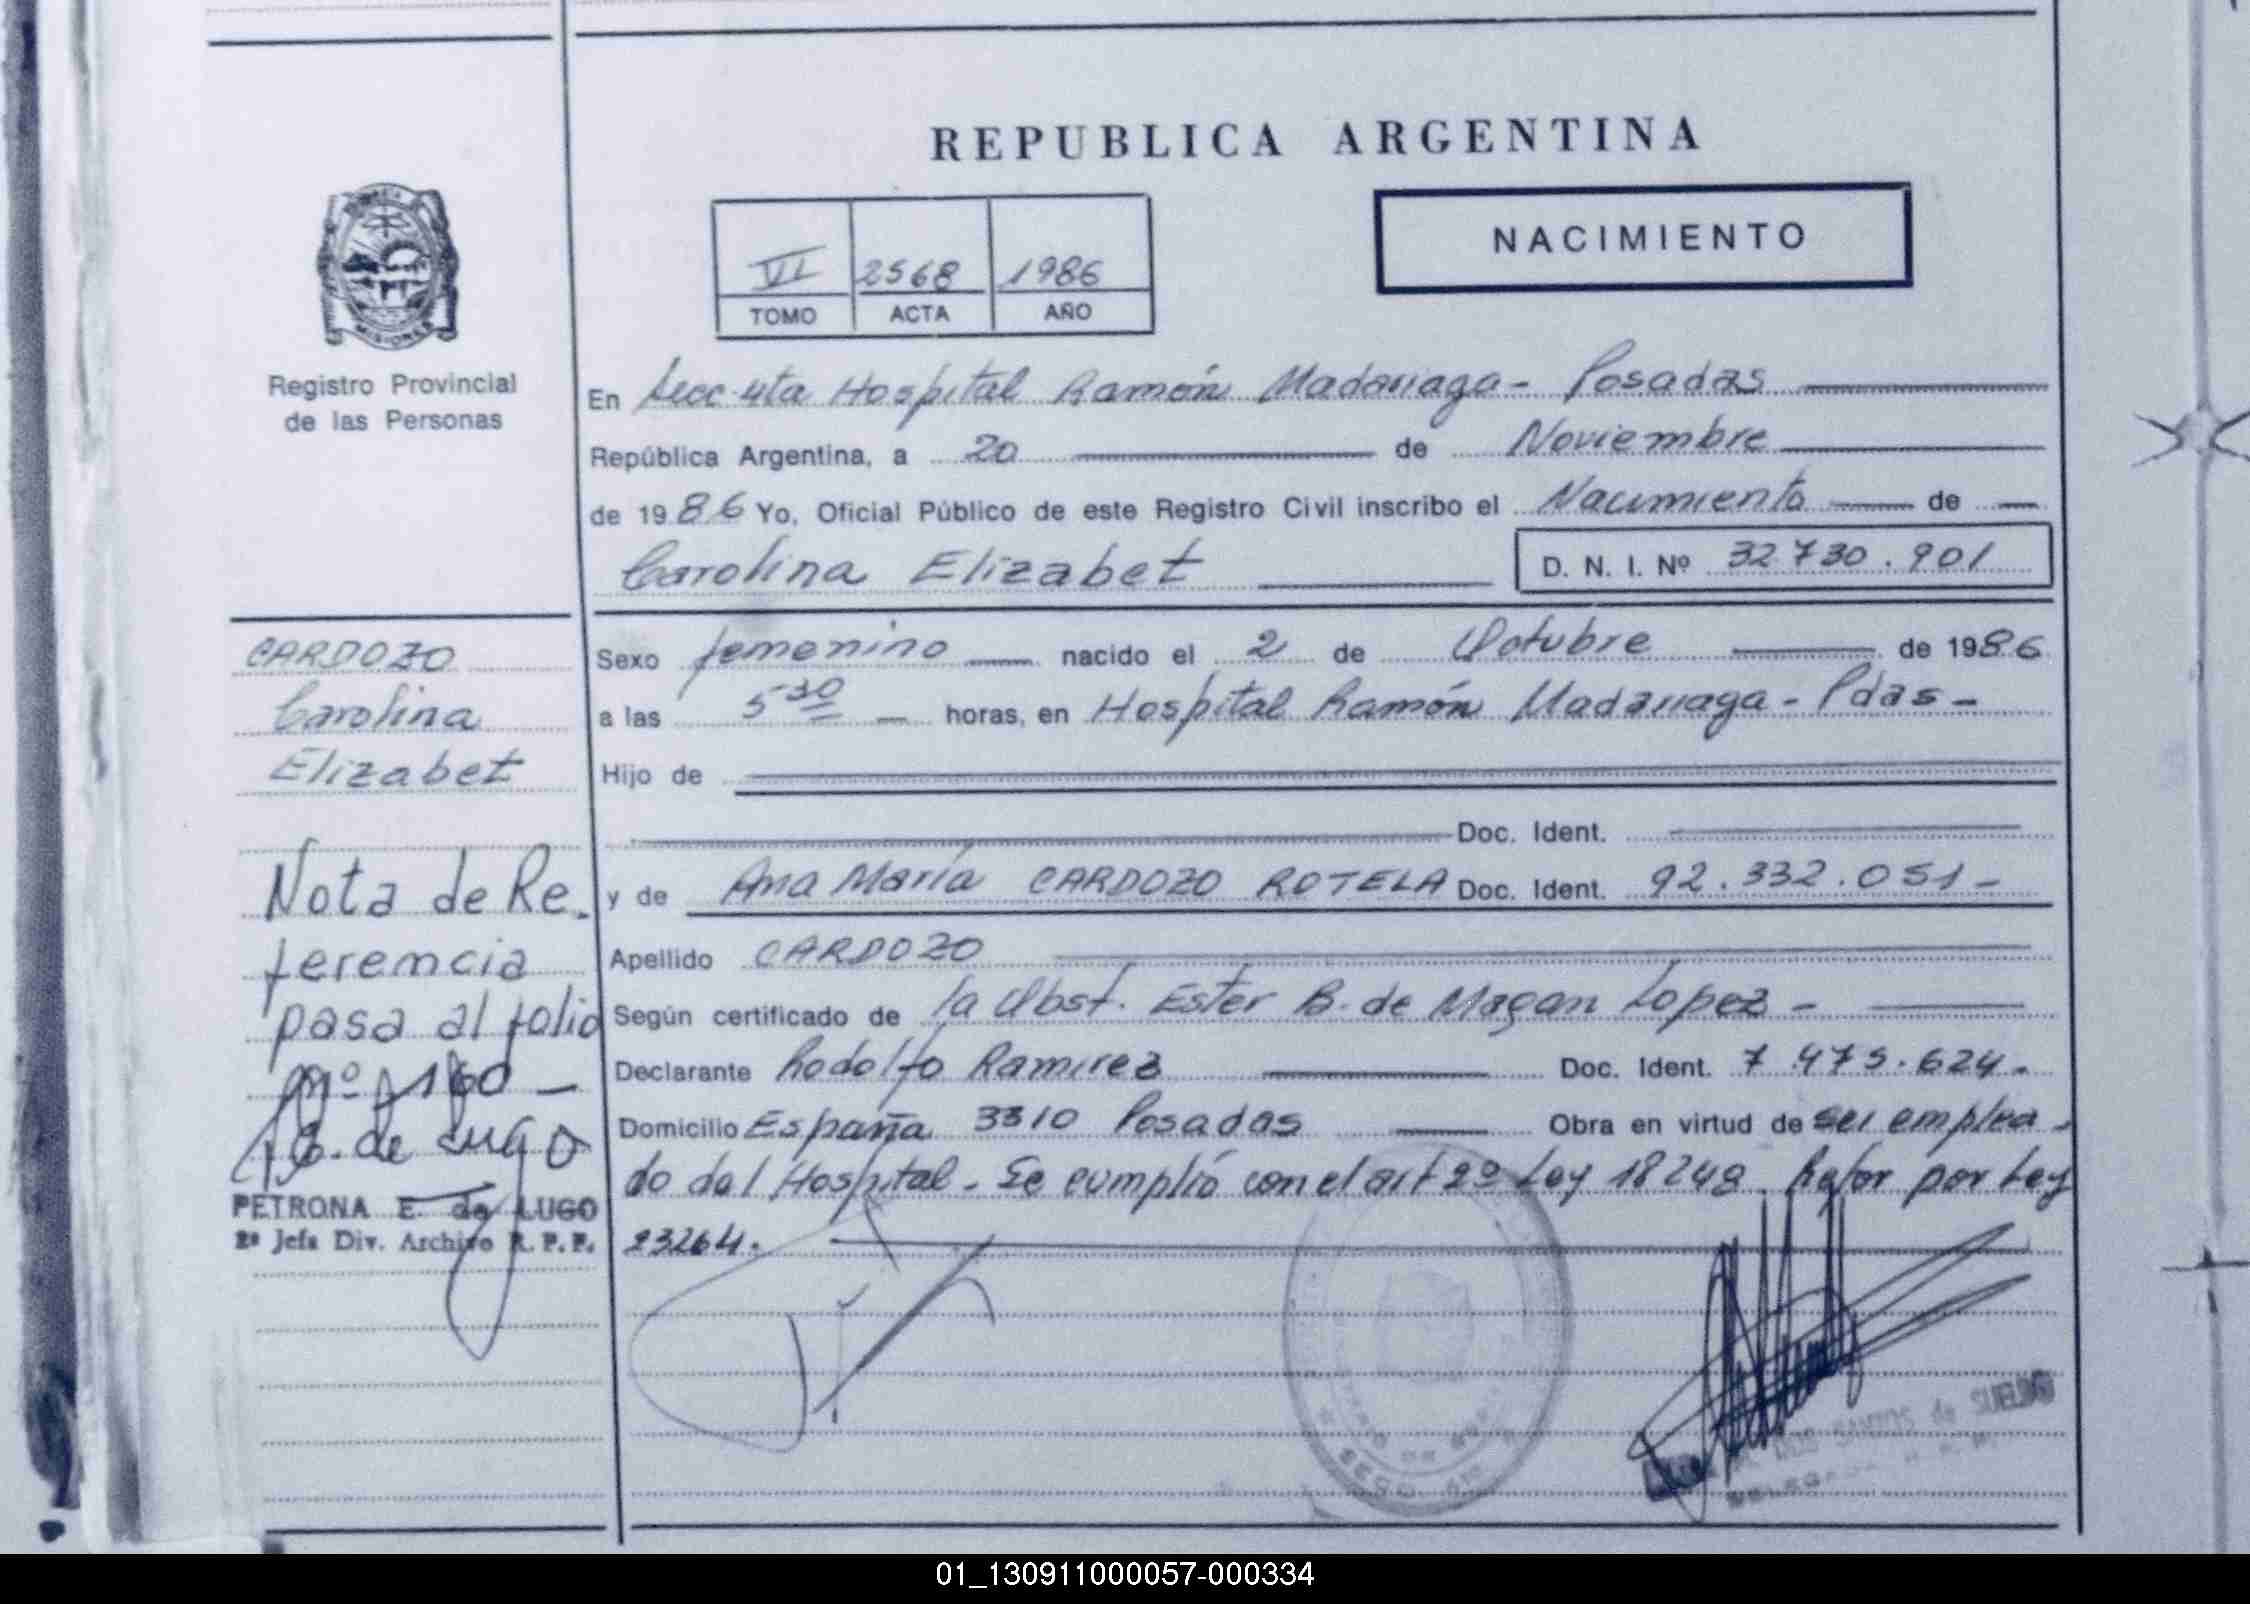 REPUBLICA ARGENTINA
NACIMIENTO
VI 2568 1986
TOMO ACTA AÑO
MISIONES
Registro Provincial
de las Personas
En Secc 4ta Hospital Ramón Madariaga - Posadas
República Argentina, a 20 de Noviembre
de 1986 Yo, Oficial Público de este Registro Civil inscribo el Nacimiento de
Carolina Elizabet D. N. I. Nº 32730.901
CARDOZO
Carolina
Elizabet
Sexo femenino nacido el 2 de Octubre de 1986
a las 5 30 horas, en Hospital Ramón Madariaga - Pdas -
Hijo de
Doc. Ident.
y de Ana María CARDOZO ROTELA Doc. Ident. 92.332.051 -
Apellido CARDOZO
Según certificado de la Obst. Ester B. de Magan Lopez -
Declarante Rodolfo Ramirez Doc. Ident. 7.475.624 -
Domicilio España 3310 Posadas Obra en virtud de ser emplea -
do del Hospital - Se cumplió con el art 2º Ley 18248. Refor por Ley
23264.
Nota de Re-
ferencia
pasa al folio
Nº 160 -
de Lugo
PETRONA E. de LUGO
2ª Jefa Div. Archivo R. P. P.
DOS SANTOS de SUELDO
01_130911000057-000334